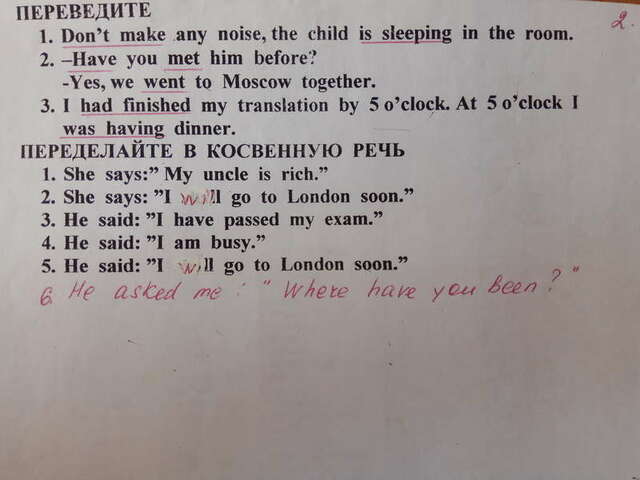 ПЕРЕВЕДИТЕ
2.
1. Don't make any noise, the child is sleeping in the room.
2. –Have you met him before?
-Yes, we went to Moscow together.
3. I had finished my translation by 5 o'clock. At 5 o'clock I
was having dinner.
ПЕРЕДЕЛАЙТЕ В КОСВЕННУЮ РЕЧЬ
1. She says:" My uncle is rich."
2. She says: "I will go to London soon."
3. He said: "I have passed my exam."
4. He said: "I am busy."
5. He said: "I will go to London soon."
6. He asked me: "Where have you been?"